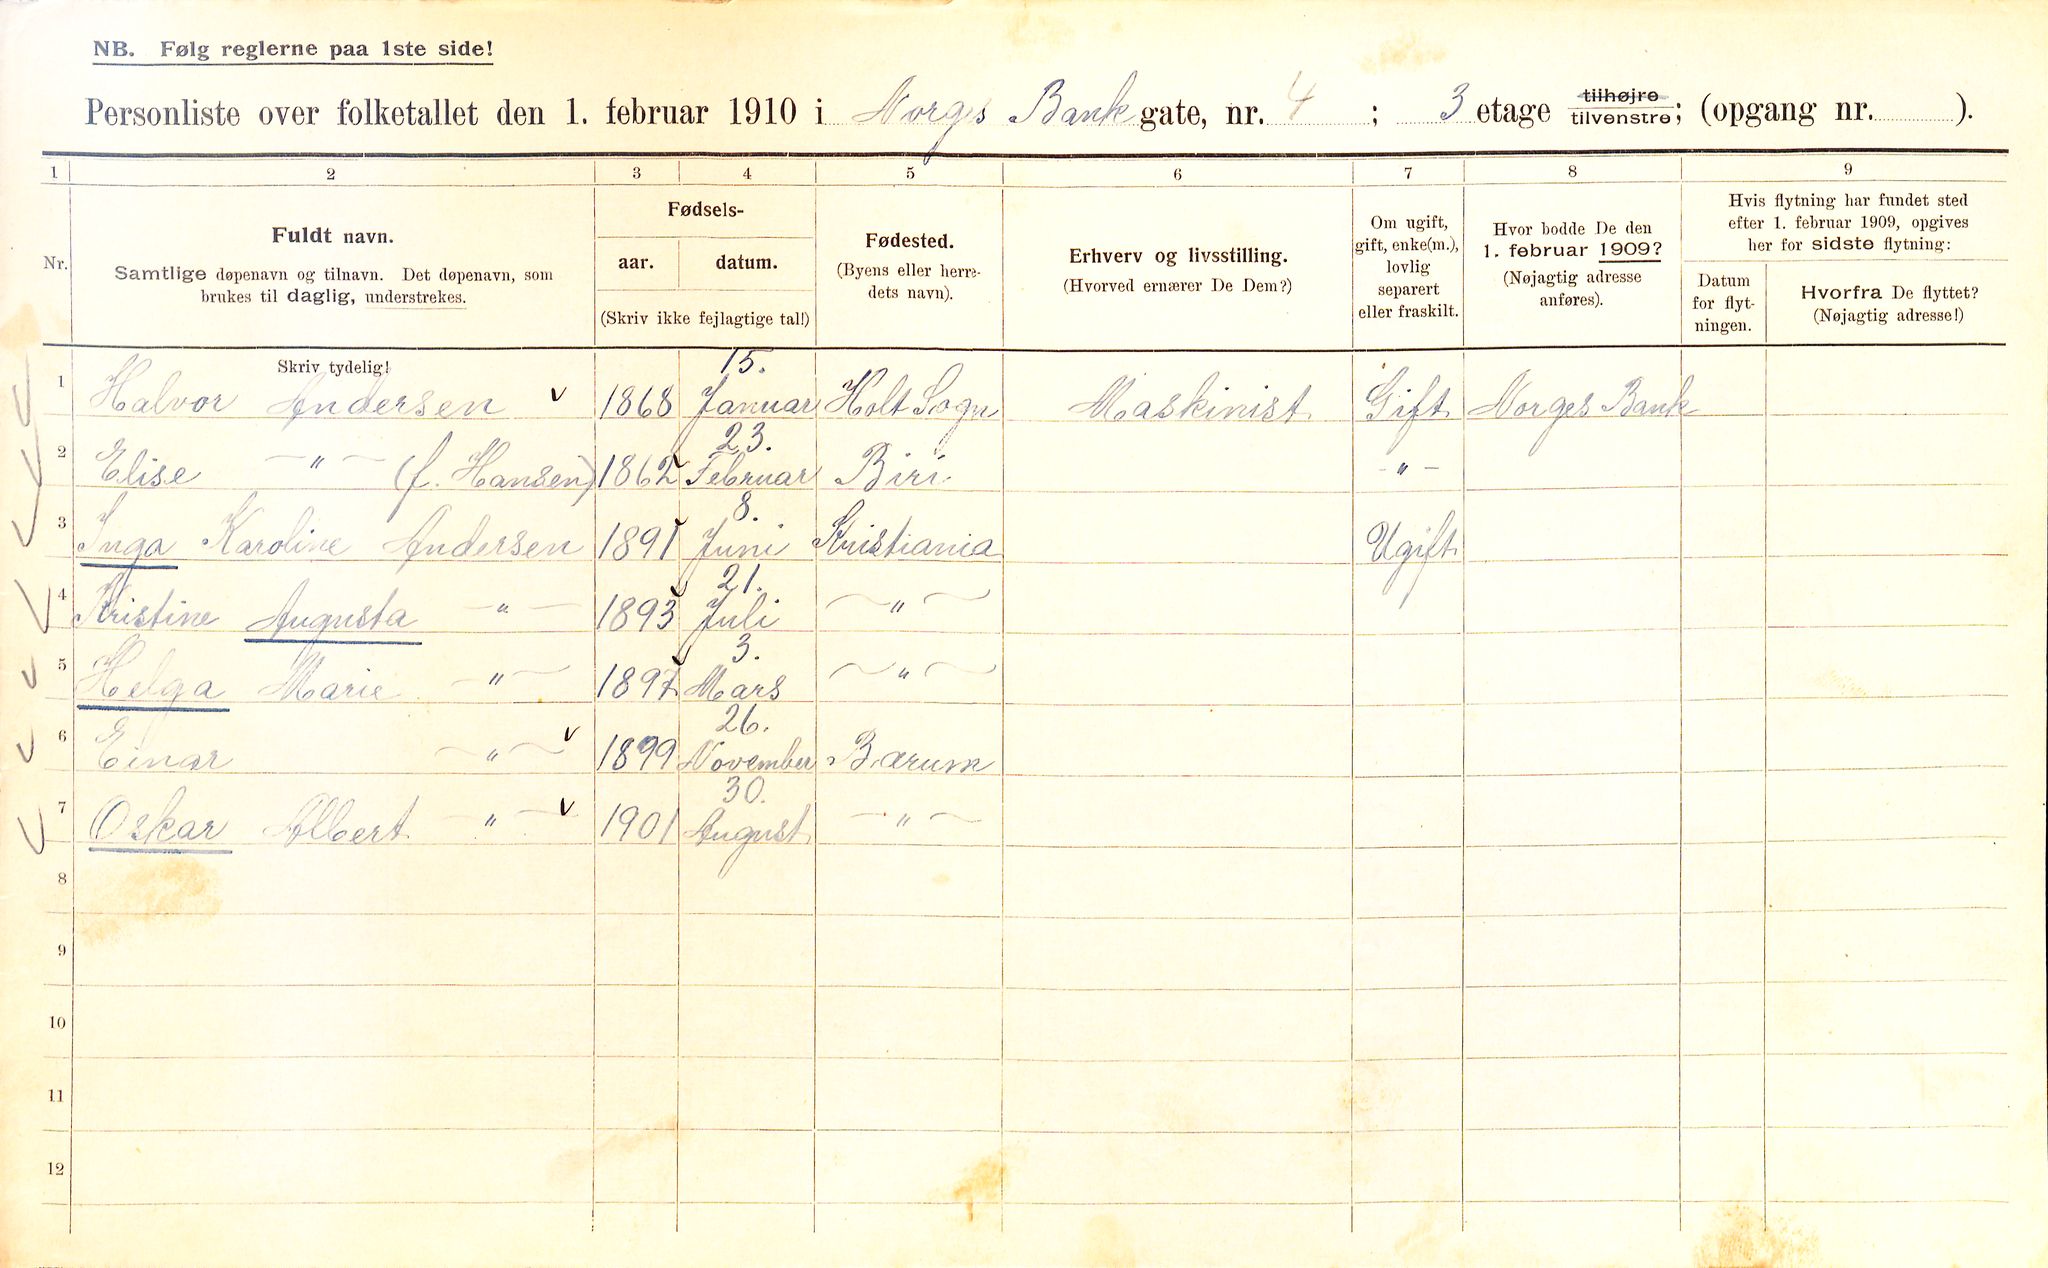 NB. Følg reglerne paa 1ste side!
Personliste over folketallet den 1. februar 1910 i Norges Bank gate, nr. 4 ; 3 etage tilhøjre tilvenstre; (opgang nr. ).
1 2 3 4 5 6 7 8 9
Nr.
Fuldt navn.
Samtlige døpenavn og tilnavn. Det døpenavn, som
brukes til daglig, understrekes.
Fødsels-
aar. datum.
(Skriv ikke fejlagtige tal!)
Fødested.
(Byens eller herre-
dets navn).
Erhverv og livsstilling.
(Hvorved ernærer De Dem?)
Om ugift,
gift, enke(m.),
lovlig
separert
eller fraskilt.
Hvor bodde De den
1. februar 1909?
(Nøjagtig adresse
anføres).
Hvis flytning har fundet sted
efter 1. februar 1909, opgives
her for sidste flytning:
Datum
for flyt-
ningen.
Hvorfra De flyttet?
(Nøjagtig adresse!)
Skriv tydelig!
1 Halvor Andersen 1868 15. Januar Holt Sogn Maskinist Gift Norges Bank
2 Elise — " — (f. Hansen) 1862 23. Februar Biri - " -
3 Inga Karoline Andersen 1891 8. Juni Kristiania Ugift
4 Kristine Augusta — " — 1893 21. Juli — " —
5 Helga Marie — " — 1897 3. Mars — " —
6 Einar — " — 1899 26. November Bærum
7 Oskar Albert — " — 1901 30. August — " —
8
9
10
11
12